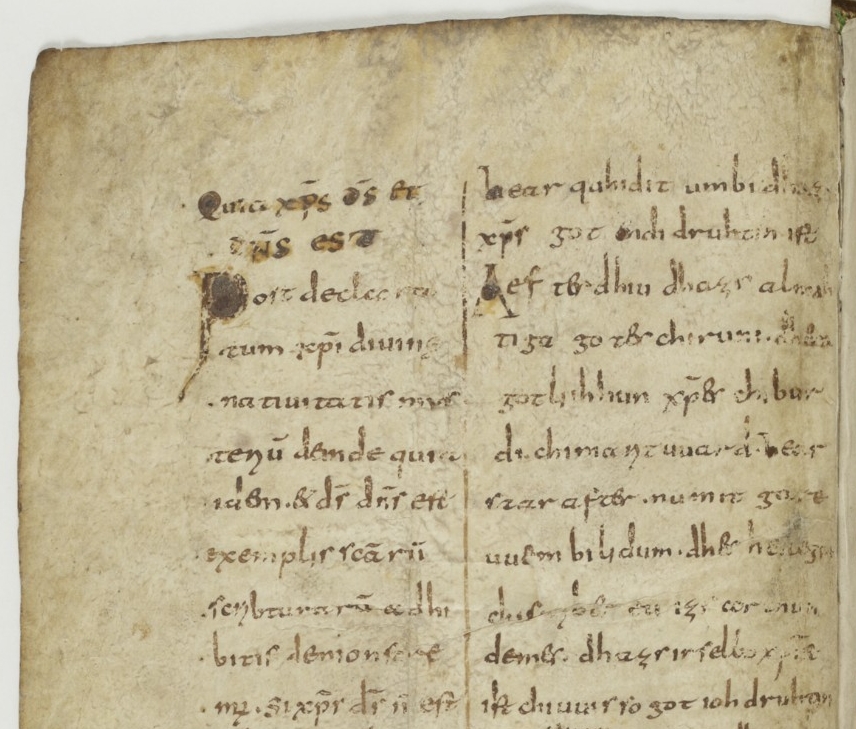 Quia xp̄s d̄s et
dn̄s est
Post declara
tum xp̄i diuinę
natiuitatis mys
teriū deinde quia
idem & d̄s dn̄s est
exemplis scārū
scribturarū adhi
bitis demonstre
mus. Si xp̄s d̄s n̄ est
hear quhidit umbi dhazs
xp̄s got endi druhtin ist
Aefter dhiu dhazs almah
tiga gotes chiruni. dhera
gotliihhun xp̄es chibur
di. chimarit uuard. hear
star after nu mit gareuuem
bilidum. dhes heilegin
chis
demes. dhazs ir selbo xp̄s
ist chiuuisso got ioh druhtin